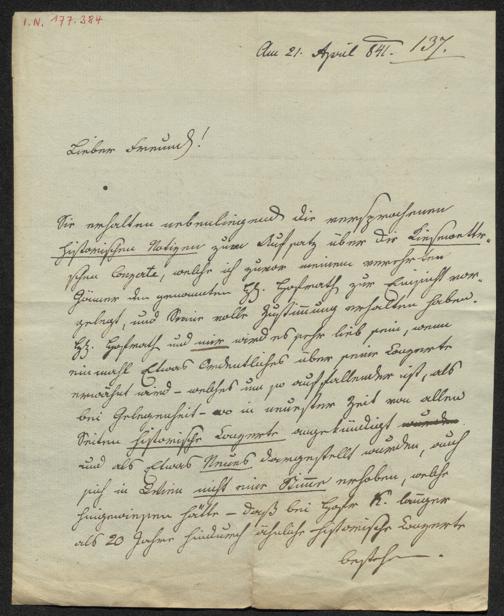 I.N. 177.384
Am 21. April 841. 137.
Lieber Freund!
Sie erhalten nebenliegend die versprochenen
historischen Notizen zum Aufsatz über die Kiesewette-
schen Conzerte, welche ich zuvor meinem verehrten
Gönner dem genannten H. Hofrath zur Einsicht vor-
gelegt, und Seine volle Zustimmung erhalten haben.
H. Hofrath und mir wird es sehr lieb sein, wenn
einmahl Etwas Ordentliches über seine Conzerte
erwähnt wird – welches um so auffallender ist, als
bei Gelegenheit – wo in neuester Zeit von allen
Seiten historische Conzerte angekündigt wurden
und als Etwas Neues dargestellt wurden, auch
sich in Wien nicht eine Stimme erhoben, welche
hingewiesen hätte – daß bei Hofr K. länger
als 20 Jahre hindurch ähnliche historische Conzerte
bestehen.